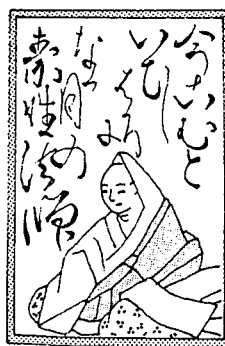 今こむと
いひし
はかりに
なか月の
素性法師